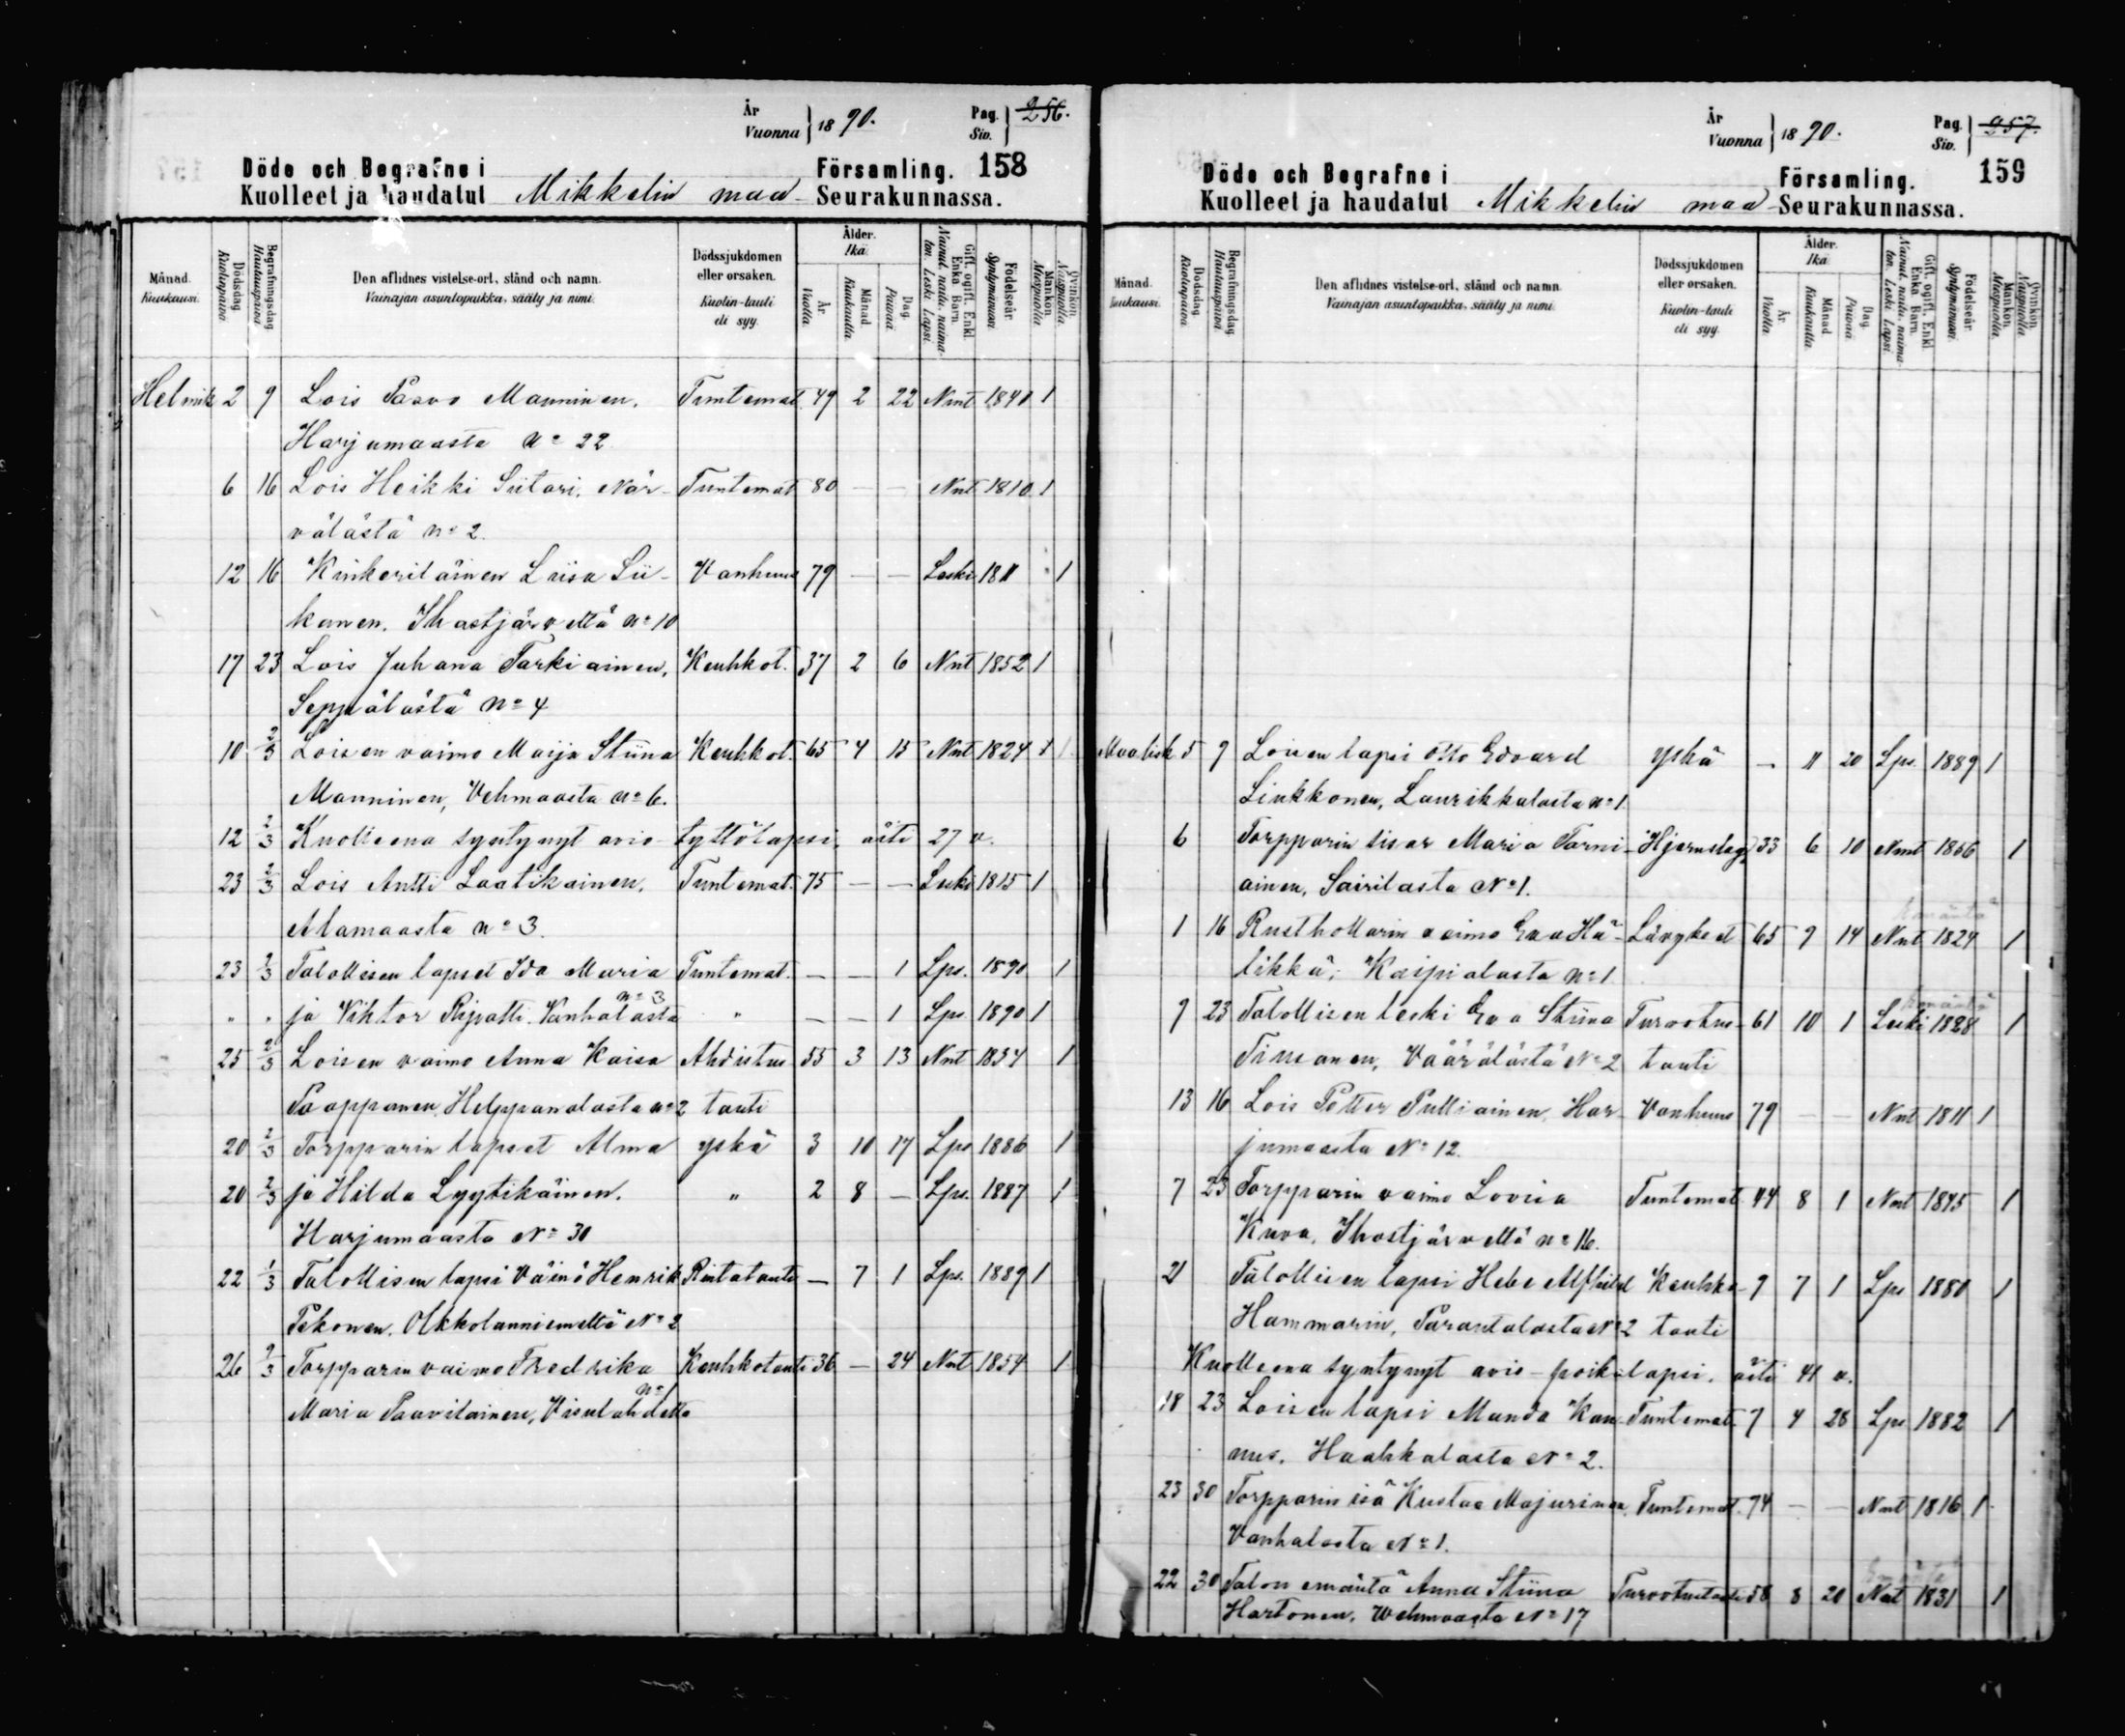 År
Vuonna } 1890.
Pag.
Siv. } 256.
Döde och Begrafne i
Kuolleet ja haudatut Mikkelin maa-
Församling. 158
Seurakunnassa.
Månad. Kuukausi.
Dödsdag. Kuolinpäivä.
Begrafningsdag. Hautauspäivä.
Den aflidnes vistelse-ort, stånd och namn.
Vainajan asuntopaikka, sääty ja nimi.
Dödssjukdomen eller orsaken.
Kuolin-tauti eli syy.
Ålder. Ikä.
År. Vuotta.
Månad. Kuukautta.
Dag. Päivää.
Gift, ogift, Enkl. Enka Barn.
Nainut, naitu, naimaton. Leski. Lapsi.
Födelseår. Syntymävuosi.
Mankön. Miespuolia.
Qvinkön. Naispuolia.
Helmik 2 9 Lois Paavo Manninen, Tuntemat. 49 2 22 Nnt 1840 1
Harjumaasta No 22
6 16 Lois Heikki Siitari, När- Tuntemat 80 — — Nnt 1810 1
välästä No 2.
12 16 Kinkeriläinen Liisa Sii- Vanhuus 79 — — Leski 1811 1
kanen, Ihastjärveltä No 10
17 23 Lois Juhana Tarkiainen, Keuhkot. 37 2 6 Nnt 1852 1
Seppälästä No 4
10 2/3 Loisen vaimo Maija Stiina Keuhkot. 65 4 15 Nnt 1824 1
Manninen, Vehmaasta No 6.
12 2/3 Kuolleena syntynyt avio- tyttölapsi, äiti 27 v.
23 2/3 Lois Antti Laatikainen, Tuntemat. 75 — — Leski 1815 1
Alamaasta No 3.
23 2/3 Talollisen lapset Ida Maria Tuntemat. — — 1 Lps. 1890 1
" " ja Vihtor Ripatti. Vanhalasta No 3 " — — 1 Lps 1890 1
25 2/3 Loisen vaimo Anna Kaisa Ahdistus 55 3 13 Nnt 1834 1
Paappanen, Helppanalasta No 2 tauti
20 2/3 Torpparin lapset Alma yskä 3 10 17 Lps 1886 1
20 2/3 ja Hilda Lyytikäinen. " 2 8 — Lps. 1887 1
Harjumaasta No 30
22 1/3 Talollisen lapsi Väinö Henrik Rintatauti — 7 1 Lps. 1889 1
Pekonen, Olkkolanniemeltä No 2
26 9/3 Torpparin vaimo Fredrika Keuhkotauti 36 — 24 Nnt 1854 1
Maria Paavilainen, Visulahdelta No 1
År
Vuonna } 1890.
Pag.
Siv. } 257.
Döde och Begrafne i
Kuolleet ja haudatut Mikkelin maa-
Församling. 159
Seurakunnassa.
Månad. Kuukausi.
Dödsdag. Kuolinpäivä.
Begrafningsdag. Hautauspäivä.
Den aflidnes vistelse-ort, stånd och namn.
Vainajan asuntopaikka, sääty ja nimi.
Dödssjukdomen eller orsaken.
Kuolin-tauti eli syy.
Ålder. Ikä.
År. Vuotta.
Månad. Kuukautta.
Dag. Päivää.
Gift, ogift, Enkl. Enka Barn.
Nainut, naitu, naimaton. Leski. Lapsi.
Födelseår. Syntymävuosi.
Mankön. Miespuolia.
Qvinkön. Naispuolia.
Maalisk 5 9 Loisen lapsi Otto Edvard yskä — 11 20 Lps. 1889 1
Liukkonen, Laurikkalasta No 1
6 Torpparin sisar Maria Tarni- Hjernslag 33 6 10 Nmt 1866 1
ainen, Sairilasta No 1.
1 16 Rusthollarin vaimo Eva Hä- 65 9 14 Nnt 1824 1
likkä, Kaipialasta No 1
9 23 Talollisen leski Eva Stiina Turvotus- 61 10 1 Leski 1828 1
Timonen, Väärälästä No 2 tauti
13 16 Lois Petter Pulliainen, Har- Vanhuus 79 — — Nnt 1811 1
jumaasta No 12.
7 23 Torpparin vaimo Loviisa Tuntemat. 44 8 1 Nnt 1845 1
Kuva, Ihastjärveltä No 16.
21 Talollisen lapsi Hebe Alfhild Keuhko- 9 7 1 Lps 1880 1
Hammarin, Parantalasta No 2 tauti
Kuolleena syntynyt avio-poikalapsi. äiti 41 v.
18 23 Loisen lapsi Manda Kan- Tuntemat. 7 4 28 Lps 1882 1
nus, Haahkalasta No 2.
23 30 Torpparin isä Kustaa Majurinen, Tuntemat. 74 — — Nnt 1816 1
Vanhalasta No 1.
22 30 Talon emäntä Anna Stiina Turvotustauti 58 8 20 Nnt 1831 1
Hartonen, Wehmaasta No 17